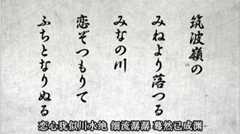 筑波嶺の
みねより落つる
みなの川
恋ぞつもりて
ふちとなりぬる
恋心我似川水绝 细流潺潺 蓦然已成渊